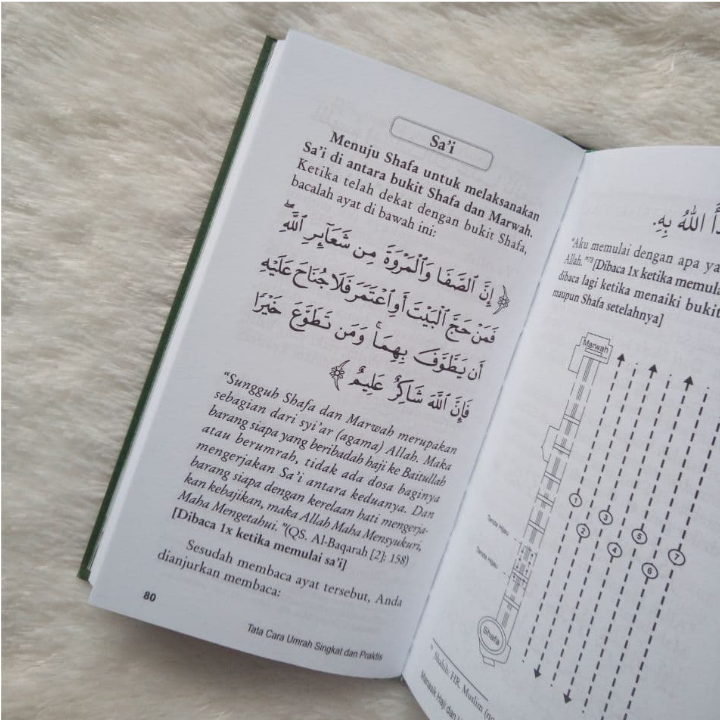 Sa'i
Menuju Shafa untuk melaksanakan
Sa'i di antara bukit Shafa dan Marwah.
Ketika telah dekat dengan bukit Shafa,
bacalah ayat di bawah ini:
﴿ إِنَّ ٱلصَّفَا وَٱلْمَرْوَةَ مِن شَعَآئِرِ ٱللَّهِ ۖ
فَمَنْ حَجَّ ٱلْبَيْتَ أَوِ ٱعْتَمَرَ فَلَا جُنَاحَ عَلَيْهِ
أَن يَطَّوَّفَ بِهِمَا ۚ وَمَن تَطَوَّعَ خَيْرًا
فَإِنَّ ٱللَّهَ شَاكِرٌ عَلِيمٌ ﴾
"Sungguh Shafa dan Marwah merupakan
sebagian dari syi'ar (agama) Allah. Maka
barang siapa yang beribadah haji ke Baitullah
atau berumrah, tidak ada dosa baginya
mengerjakan Sa'i antara keduanya. Dan
barang siapa dengan kerelaan hati mengerja-
kan kebajikan, maka Allah Maha Mensyukuri,
Maha Mengetahui. "(QS. Al-Baqarah [2]: 158)
[Dibaca 1x ketika memulai sa'i]
Sesudah membaca ayat tersebut, Anda
dianjurkan membaca:
80
Tata Cara Umrah Singkat dan Praktis
اللهُ بِهِ.
"Aku memulai dengan apa ya
Allah." [Dibaca 1x ketika memula
dibaca lagi ketika menaiki bukit
maupun Shafa setelahnya]
Marwah
1
2
3
4
5
6
7
Tanda Hijau
Tanda Hijau
Shafa
Shahih: HR. Muslim
Manasik Haji dan